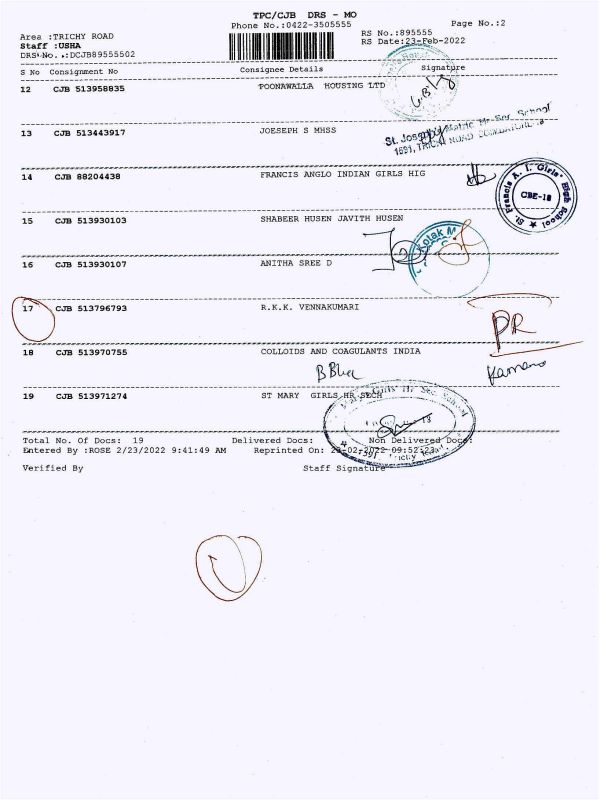 TPC/CJB DRS - MO
Phone No.:0422-3505555
Page No.:2
Area :TRICHY ROAD
RS No.:895555
Staff :USHA
RS Date:23-Feb-2022
DRS No. :DCJB89555502
S No Consignment No Consignee Details Signature
12 CJB 513958835 POONAWALLA HOUSING LTD
13 CJB 513443917 JOESEPH S MHSS
St. Joseph's Matric Hr. Sec. School
1591, TRICHY ROAD COIMBATORE-18
14 CJB 88204438 FRANCIS ANGLO INDIAN GIRLS HIG
St. Francis A. I. Girls' High School
CBE-18
15 CJB 513930103 SHABEER HUSEN JAVITH HUSEN
Kotak M
16 CJB 513930107 ANITHA SREE D
17 CJB 513796793 R.K.K. VENNAKUMARI
PR
18 CJB 513970755 COLLOIDS AND COAGULANTS INDIA
19 CJB 513971274 ST MARY GIRLS HR SECH
Mary Girls' Hr Sec School
Total No. Of Docs: 19 Delivered Docs: Non Delivered Docs:
Entered By :ROSE 2/23/2022 9:41:49 AM Reprinted On: 23-02-2022 09:52:23
Verified By Staff Signature